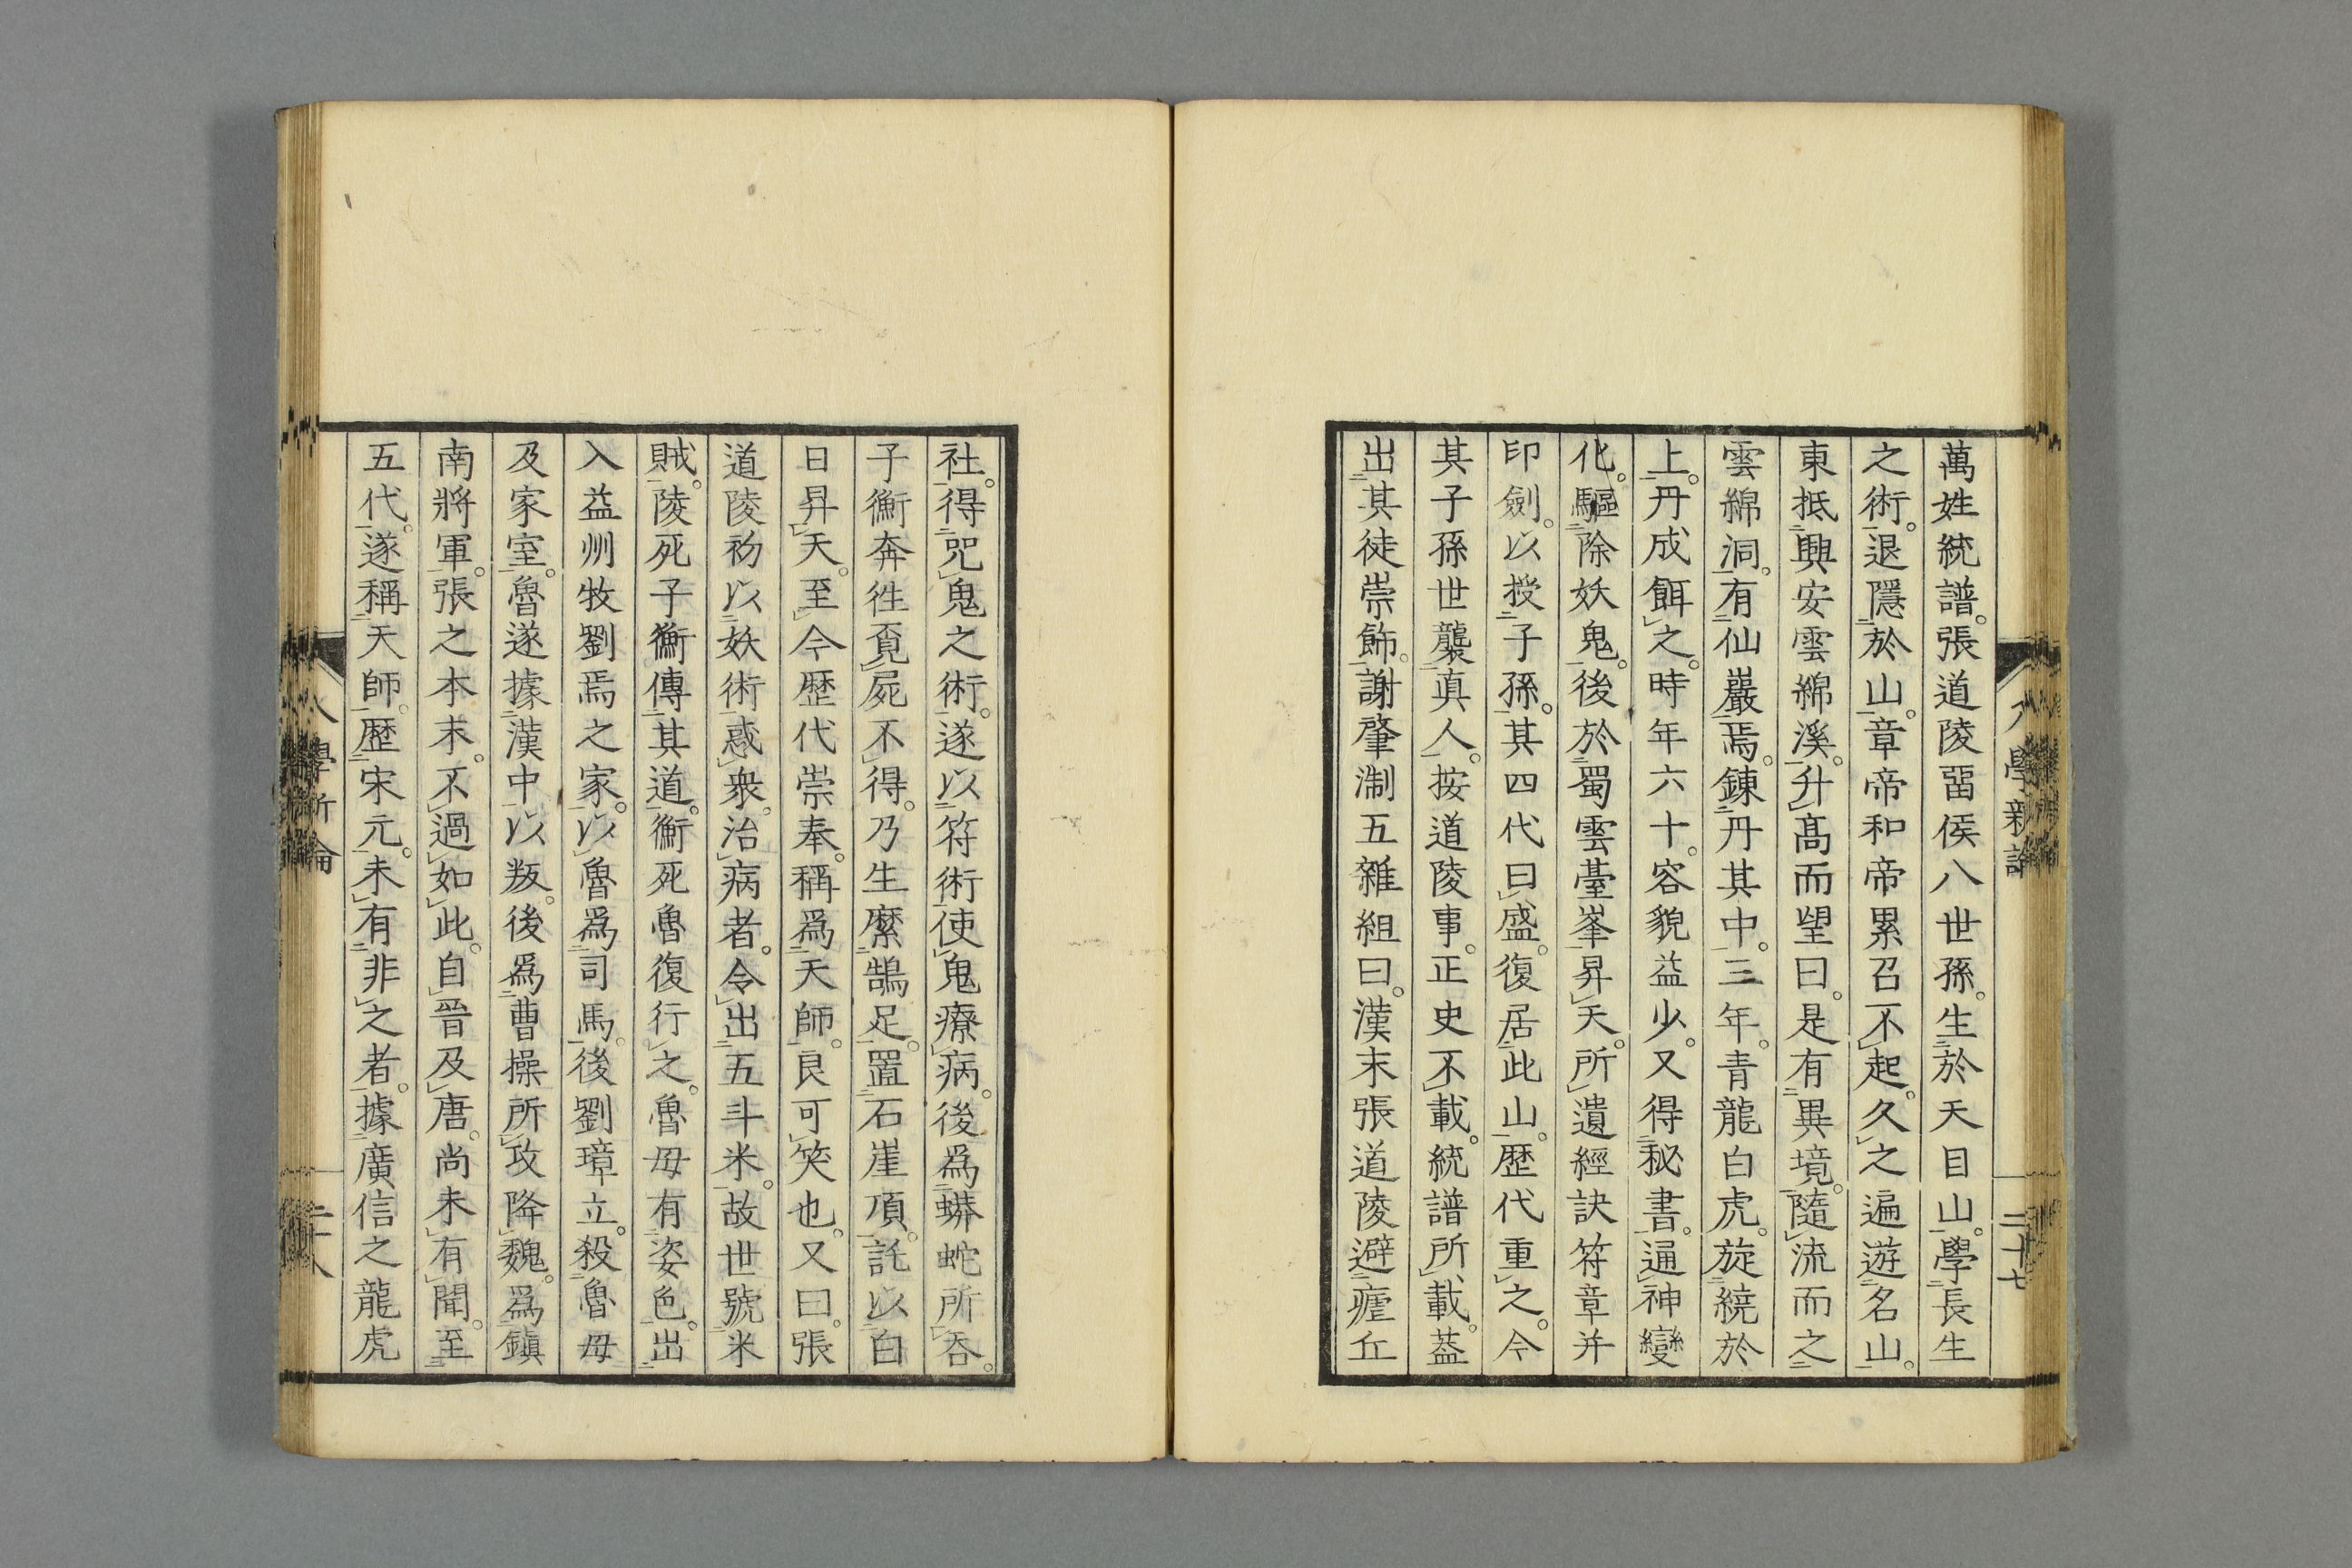 萬姓統譜。張道陵畱侯八世孫。生於天目山。學長生
之術。退隱於山。章帝和帝累召不起。久之遍遊名山。
東抵興安雲綿溪。升高而望曰。是有異境。隨流而之
雲綿洞。有仙巖焉。鍊丹其中。三年。青龍白虎。旋繞於
上。丹成餌之。時年六十。容貌益少。又得秘書。通神變
化。驅除妖鬼。後於蜀雲臺峯昇天。所遺經訣符章并
印劍。以授子孫。其四代曰盛。復居此山。歷代重之。今
其子孫世襲真人。按道陵事。正史不載。統譜所載。蓋
出其徒崇飾。謝肇淛五雜組曰。漢末張道陵避瘧丘
社。得咒鬼之術。遂以符術使鬼療病。後爲蟒蛇所吞。
子衡奔徃覓屍不得。乃生縻鵠足。置石崖頂。託以白
日昇天。至今歷代崇奉。稱爲天師。良可笑也。又曰。張
道陵初以妖術惑衆。治病者。令出五斗米。故世號米
賊。陵死子衡傳其道。衡死魯復行之。魯母有姿色。出
入益州牧劉焉之家。以魯爲司馬。後劉璋立。殺魯母
及家室。魯遂據漢中以叛。後爲曹操所攻降魏。爲鎭
南將軍。張之本末。不過如此。自晉及唐。尚未有聞。至
五代。遂稱天師。歷宋元。未有非之者。據廣信之龍虎